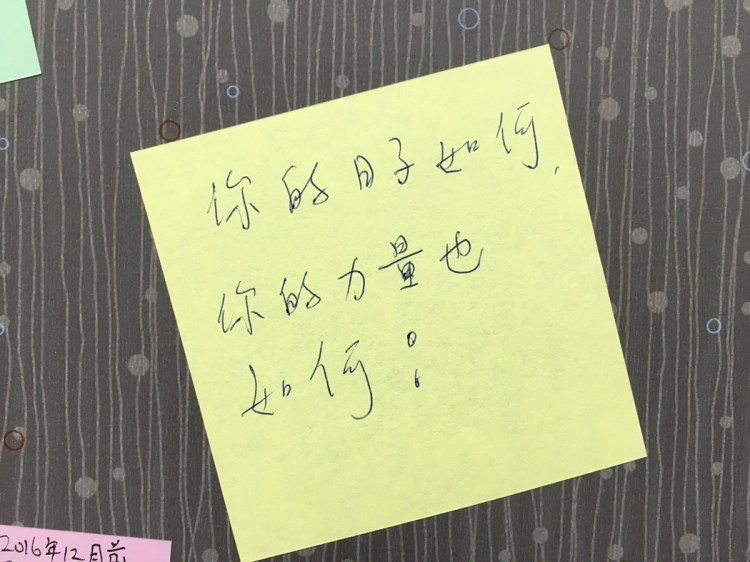 你的日子如何,
你的力量也
如何;
2016年12月前